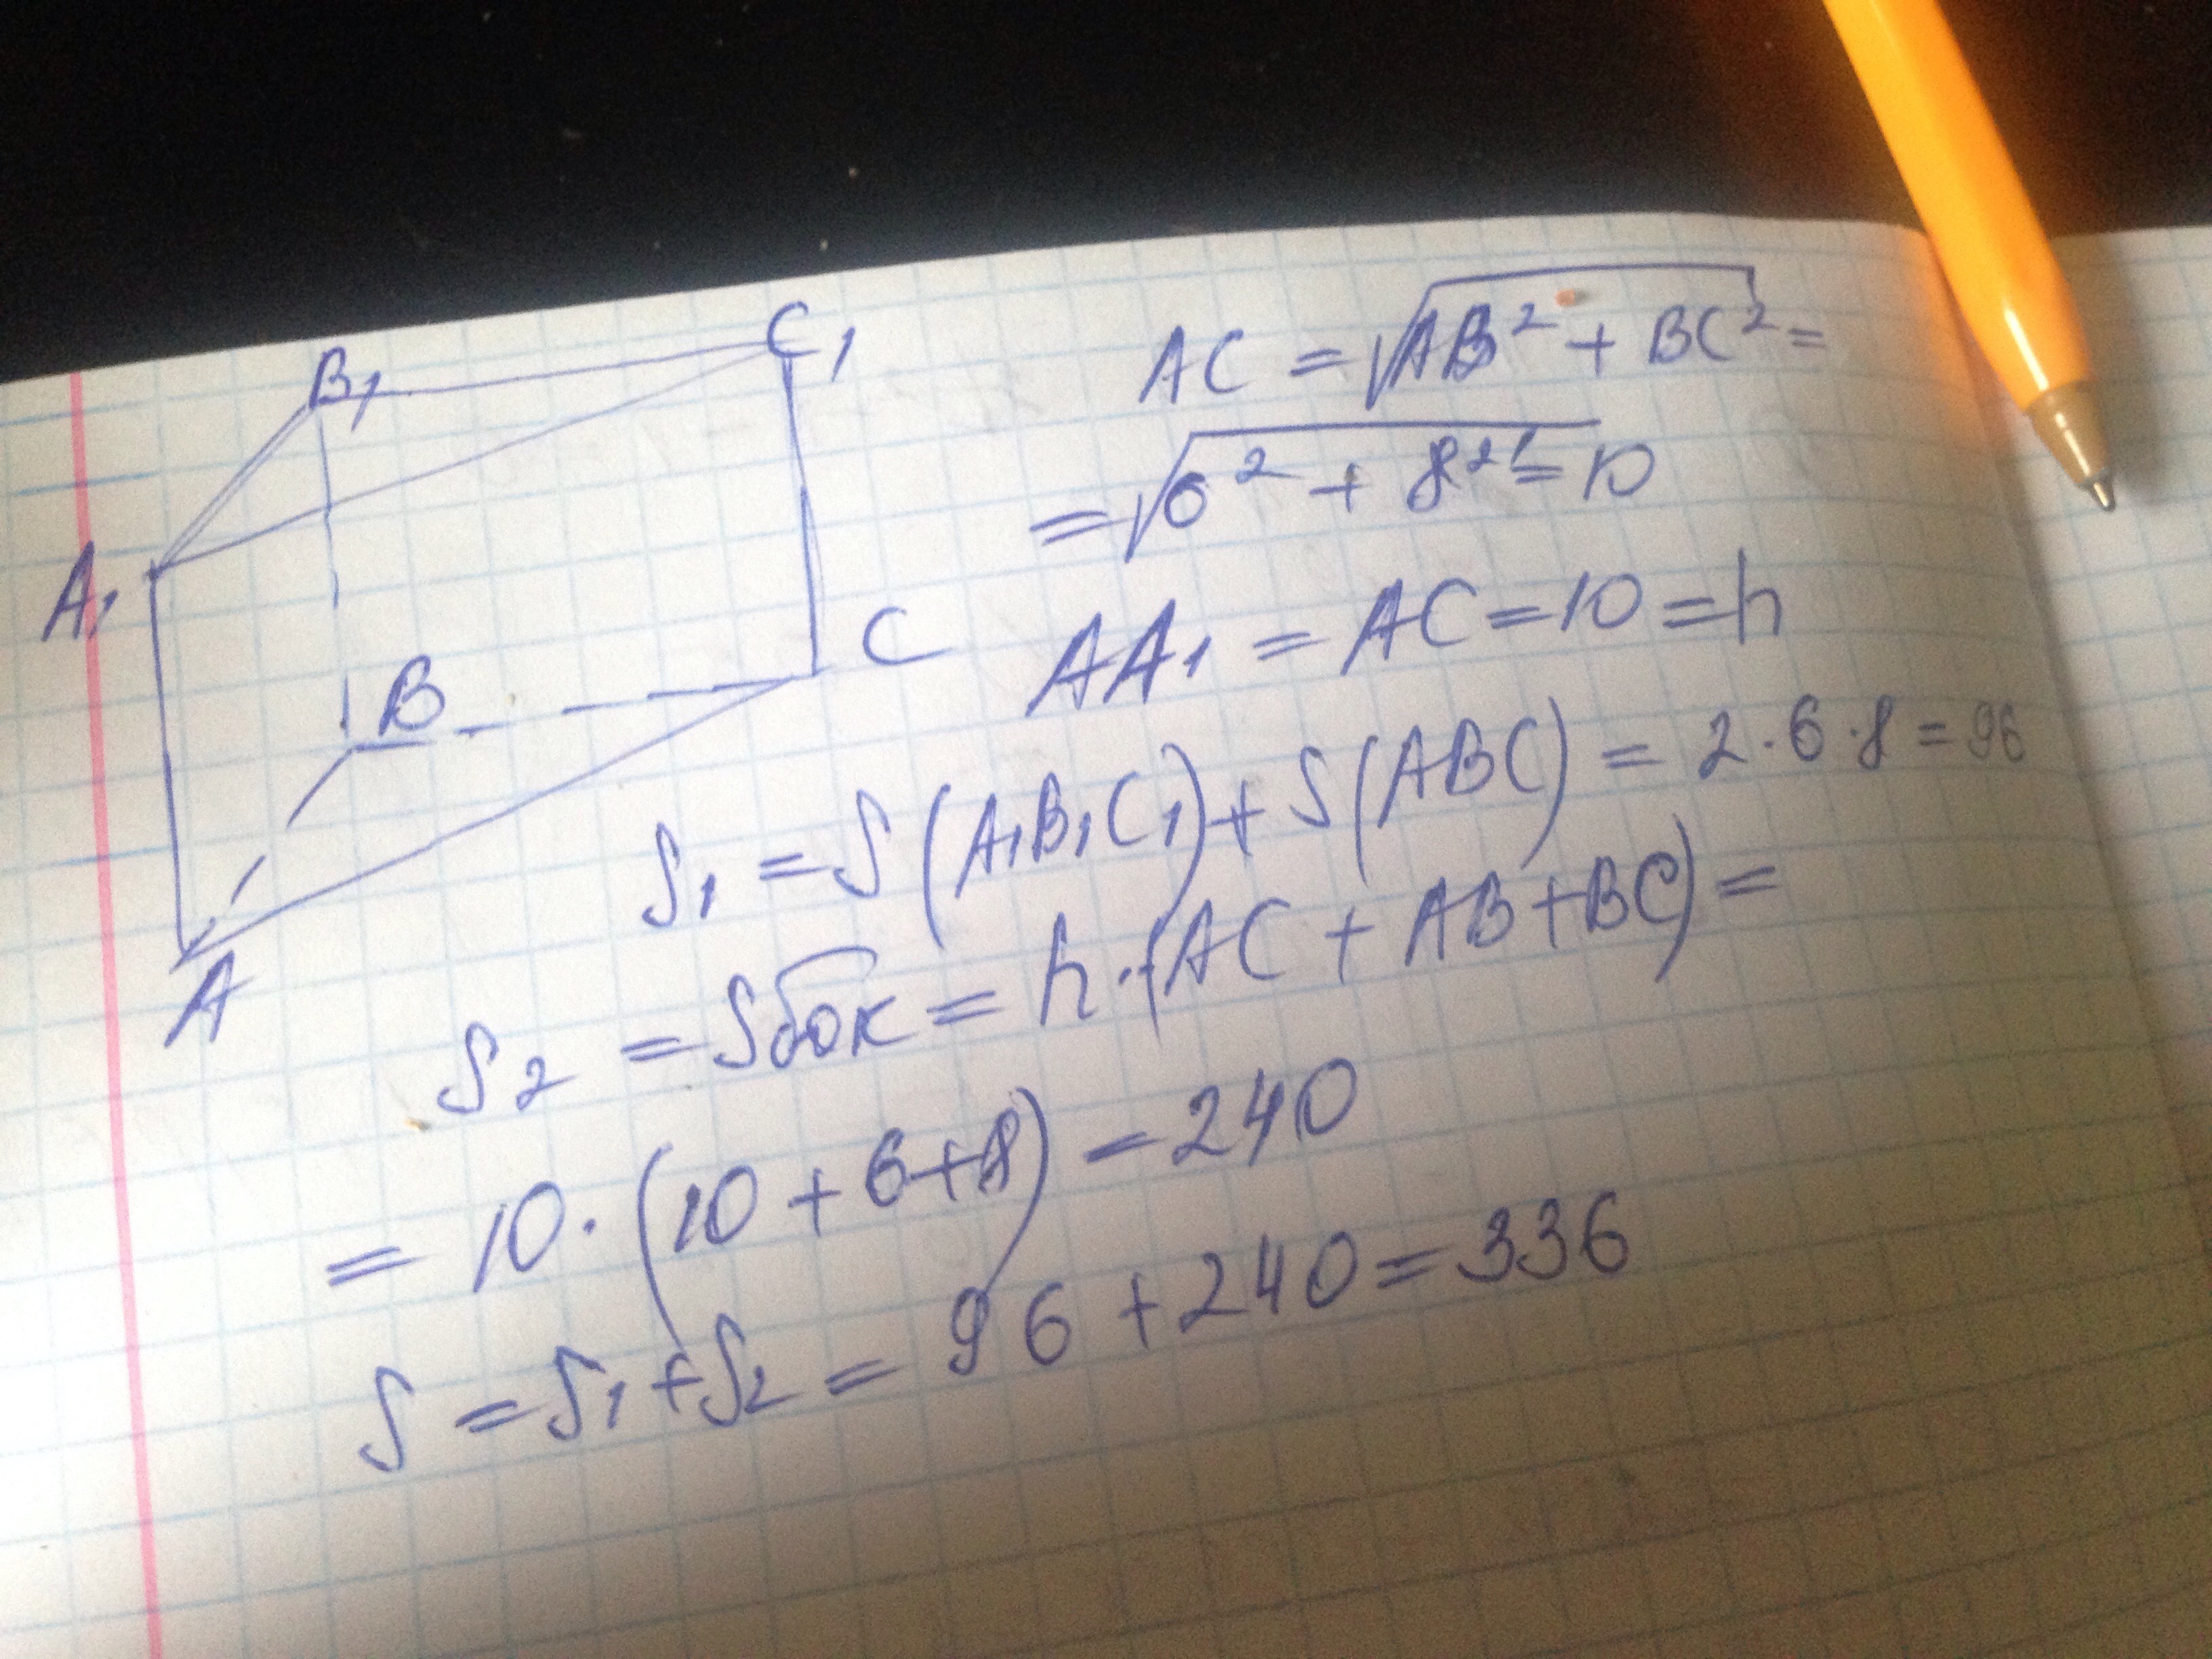 B₁
C₁
A₁
B
C
A
AC = √AB² + BC² =
= √6² + 8² = 10
AA₁ = AC = 10 = h
S₁ = S(A₁B₁C₁) + S(ABC) = 2 · 6 · 8 = 96
S₂ = Sбок = h · (AC + AB + BC) =
= 10 · (10 + 6 + 8) = 240
S = S₁ + S₂ = 96 + 240 = 336